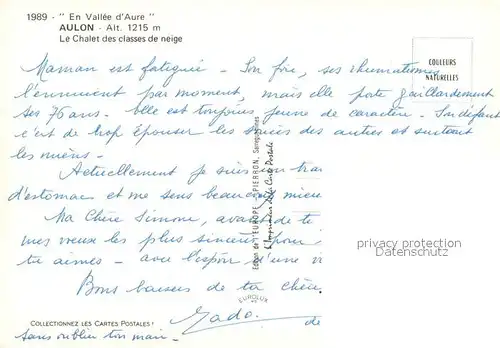 1989 - " En Vallée d'Aure "
AULON - Alt. 1215 m
Le Chalet des classes de neige
COULEURS
NATURELLES
Maman est fatiguée - Son foie, ses rhumatismes
l'ennuient par moment, mais elle porte gaillardement
ses 76 ans. elle est toujours jeune de caractère. Son défaut
c'est de trop épouser les soucis des autres et surtout
les miens.
Actuellement je suis un trai
d'estomac et me sens beaucoup mieu
Ma Chère Simone, avant de te
mes vœux les plus sincères pour
tu aimes - avec l'espoir d'une vi
Bons baisers de ta chère
Zado.
de
sans oublier ton mari.
COLLECTIONNEZ LES CARTES POSTALES !
Edition de l'EUROPE - PIERRON, Sarreguemines
L'Imprimeur de la Carte Postale
EUROLUX
privacy protection
Datenschutz